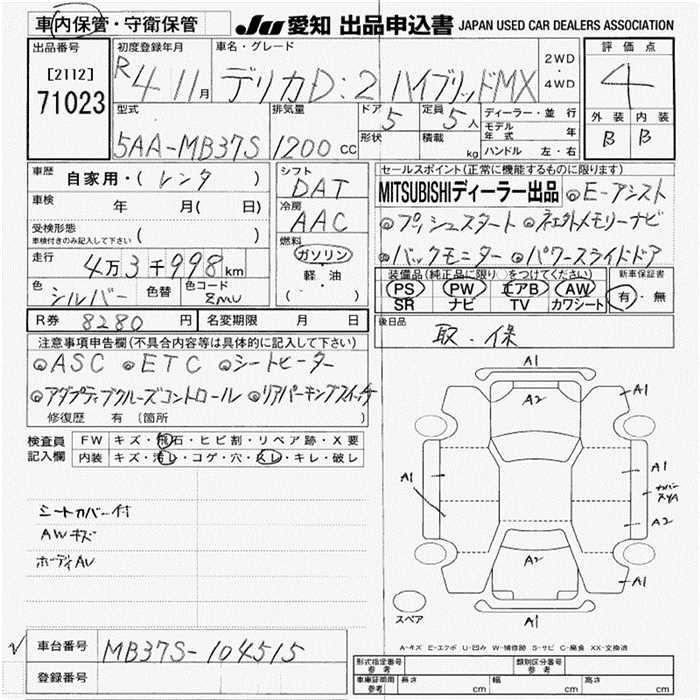 車内保管・守衛保管
JU 愛知 出品申込書 JAPAN USED CAR DEALERS ASSOCIATION
出品番号
[2112]
71023
初度登録年月
R4 11月
車名・グレード
デリカD:2 ハイブリッドMX
2WD
・
4WD
評価点
4
外装 内装
B B
型式
5AA-MB37S
排気量
1200 CC
ドア
5
定員
5人
形状
積載
kg
ディーラー・並行
モデル年式 年
ハンドル 左・右
車歴 自家用・( レンタ )
車検 年 月( 日)
受検形態
車検付きのみ記入して下さい ( )
走行 4万3千998km
色 シルバー 色替 色コード ZMU
シフト
DAT
冷房
AAC
燃料
ガソリン
軽・油
( )
セールスポイント(正常に機能するものに限ります)
MITSUBISHIディーラー出品 ◎E-アシスト
◎プッシュスタート ◎社外メモリーナビ
◎バックモニター ◎パワースライドドア
装備品(純正品に限り○をつけてください)
PS PW エアB AW
SR ナビ TV カワシート
新車保証書
有・無
R券 8280 円 名変期限 月 日
後日品
取・保
注意事項申告欄(不具合内容等は具体的に記入して下さい)
◎ASC ◎ETC ◎シートヒーター
◎アダプティブクルーズコントロール ◎リアパーキングスイッチ
修復歴 有 (箇所 )
検査員記入欄
FW キズ・飛石・ヒビ割・リペア跡・X要
内装 キズ・汚レ・コゲ・穴・スレ・キレ・破レ
シートカバー付
AWキズ
ボーディAU
A1
A2
A1
A1
A1
A2
A2
A1
A1
スペア
A-キズ E-エクボ U-凹み W-補修跡 S-サビ C-腐食 XX-交換済
車台番号 MB37S-104515
登録番号
形式指定番号
参考
類別区分番号
参考
車庫証明用
参考
長さ cm 幅 cm 高さ cm